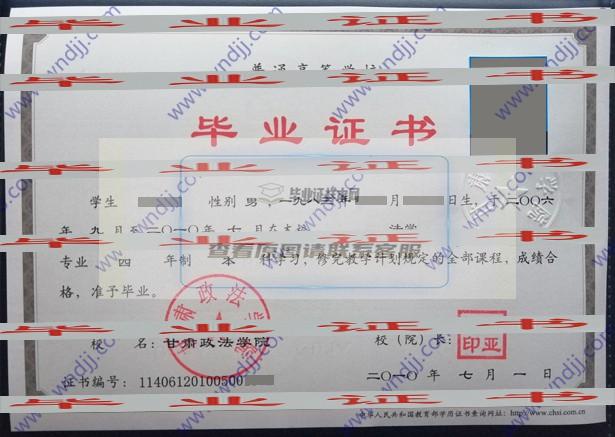 毕业证书
www.wndjj.com
普通高等学校
毕业证书
学生 性别 男，一九八三年 月 日生，于二〇〇六
年 九 月至二〇一〇年 七 月在本校 法学
毕业证样本网
查看原图请联系客服
专业 四 年制 本 科学习，修完教学计划规定的全部课程，成绩合
格，准予毕业。
校 名：甘肃政法学院
校（院）长：
印亚
证书编号：11406120100500
二〇一〇 年 七 月 一 日
中华人民共和国教育部学历证书查询网址：http://www.chsi.com.cn